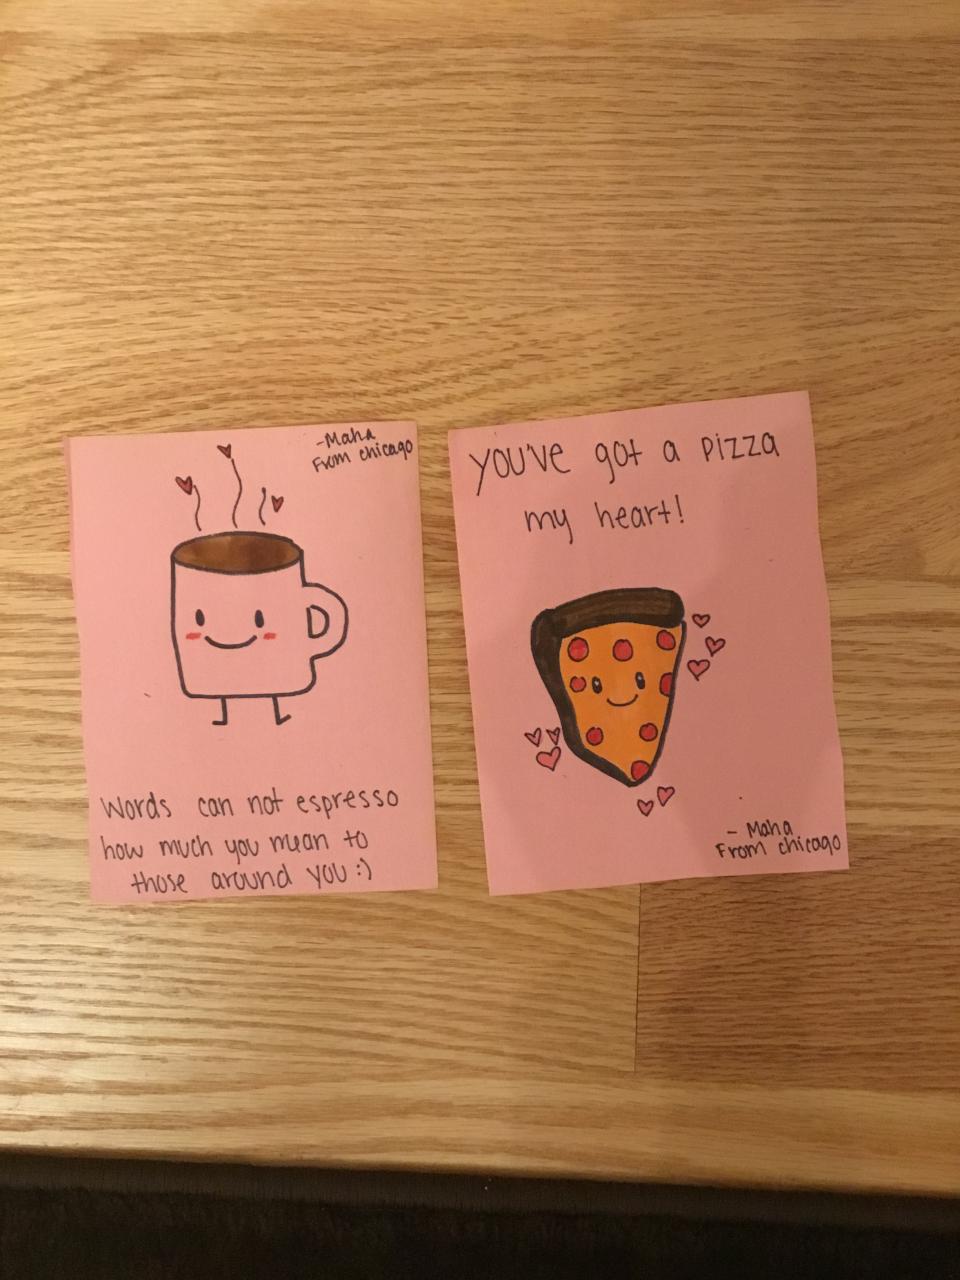 -Maha
From chicago
Words can not espresso
how much you mean to
those around you :)
you've got a pizza
my heart!
- Maha
From chicago